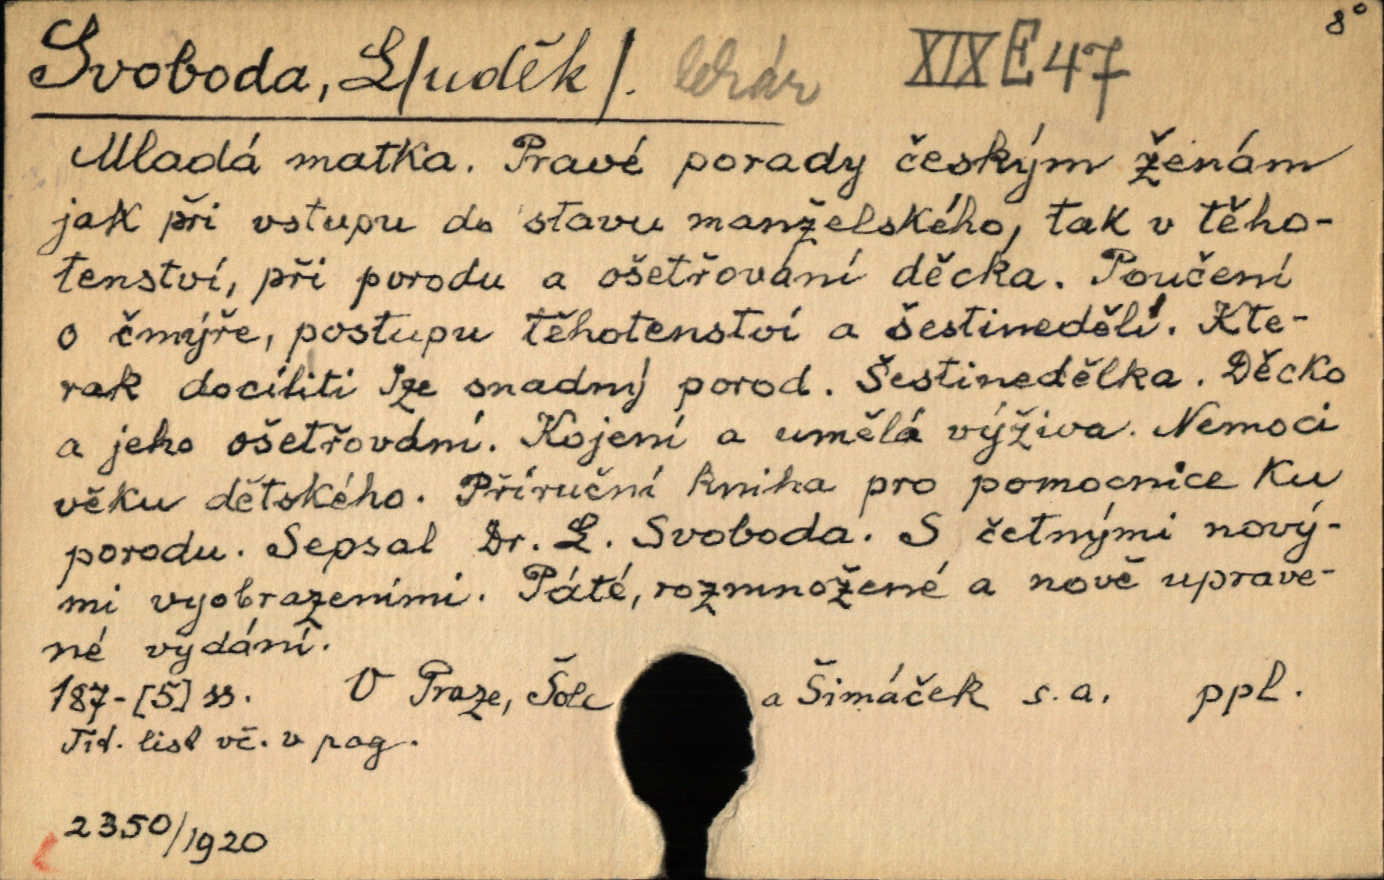 8°
Svoboda, L/uděk/. lékař XIX E 47
Mladá matka. Pravé porady českým ženám
jak při vstupu do stavu manželského, tak v těho-
tenství, při porodu a ošetřování děcka. Poučení
o čmýře, postupu těhotenství a šestinedělí. Kte-
rak docíliti lze snadný porod. Šestinedělka. Děcko
a jeho ošetřování. Kojení a umělá výživa. Nemoci
věku dětského. Příruční kniha pro pomocnice ku
porodu. Sepsal Dr. L. Svoboda. S četnými nový-
mi vyobrazeními. Páté, rozmnožené a nově uprave-
né vydání.
187-[5] ss. V Praze, Šolc a Šimáček s.a. ppl.
Tit. list vč. v pag.
2350/1920